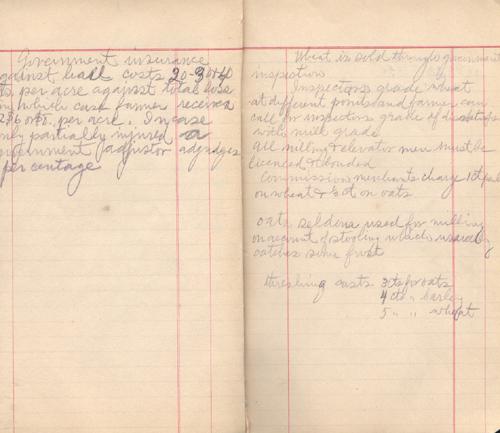 Government insurance
against hail costs 20-30+40
cts per acre against total loss
in which case farmer receives
per acre. In case
only partially injured a
government adjustor adjudges
percentage
Wheat is sold through government
inspection
Inspectors grade wheat
at different points and farmer can
call for inspectors grade if dissatisfied
with mill grade
All milling & elevator men must be
licensed & bonded
Commissions merchants charge 1ct per bu
on wheat & ct on oats
oats seldom used for milling
on account of stooling which usually
catches some frost
threshing costs 3cts for oats
4 cts " barley
5 " " wheat